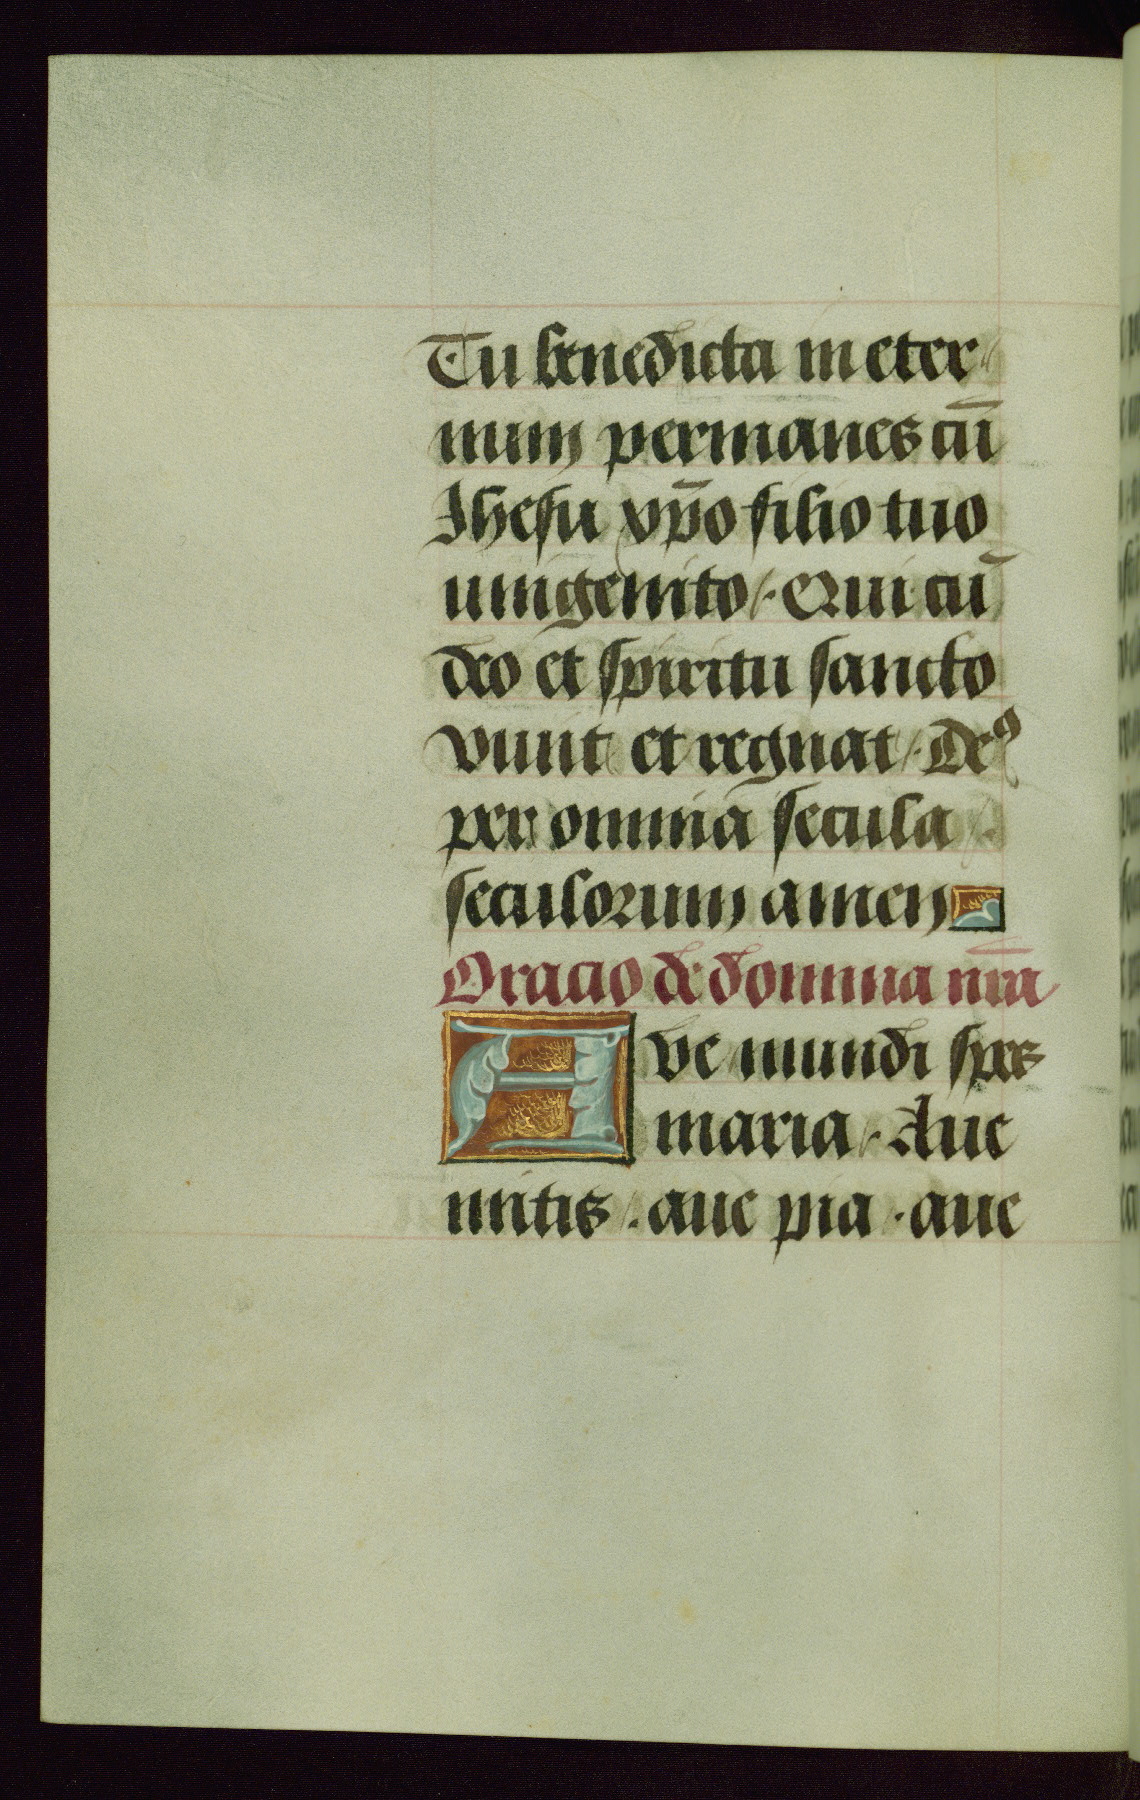 Tu benedicta in eter
num permanes cū
Jhesu xp̄o filio tuo
unigenito /. Qui cū
deo et spiritu sancto
viuit et regnat /. Deꝰ
per omnia secula /.
seculorum amen
Oracio de domina nr̄a
Ave mundi spes
maria /. Aue
mitis /. aue pia . aue